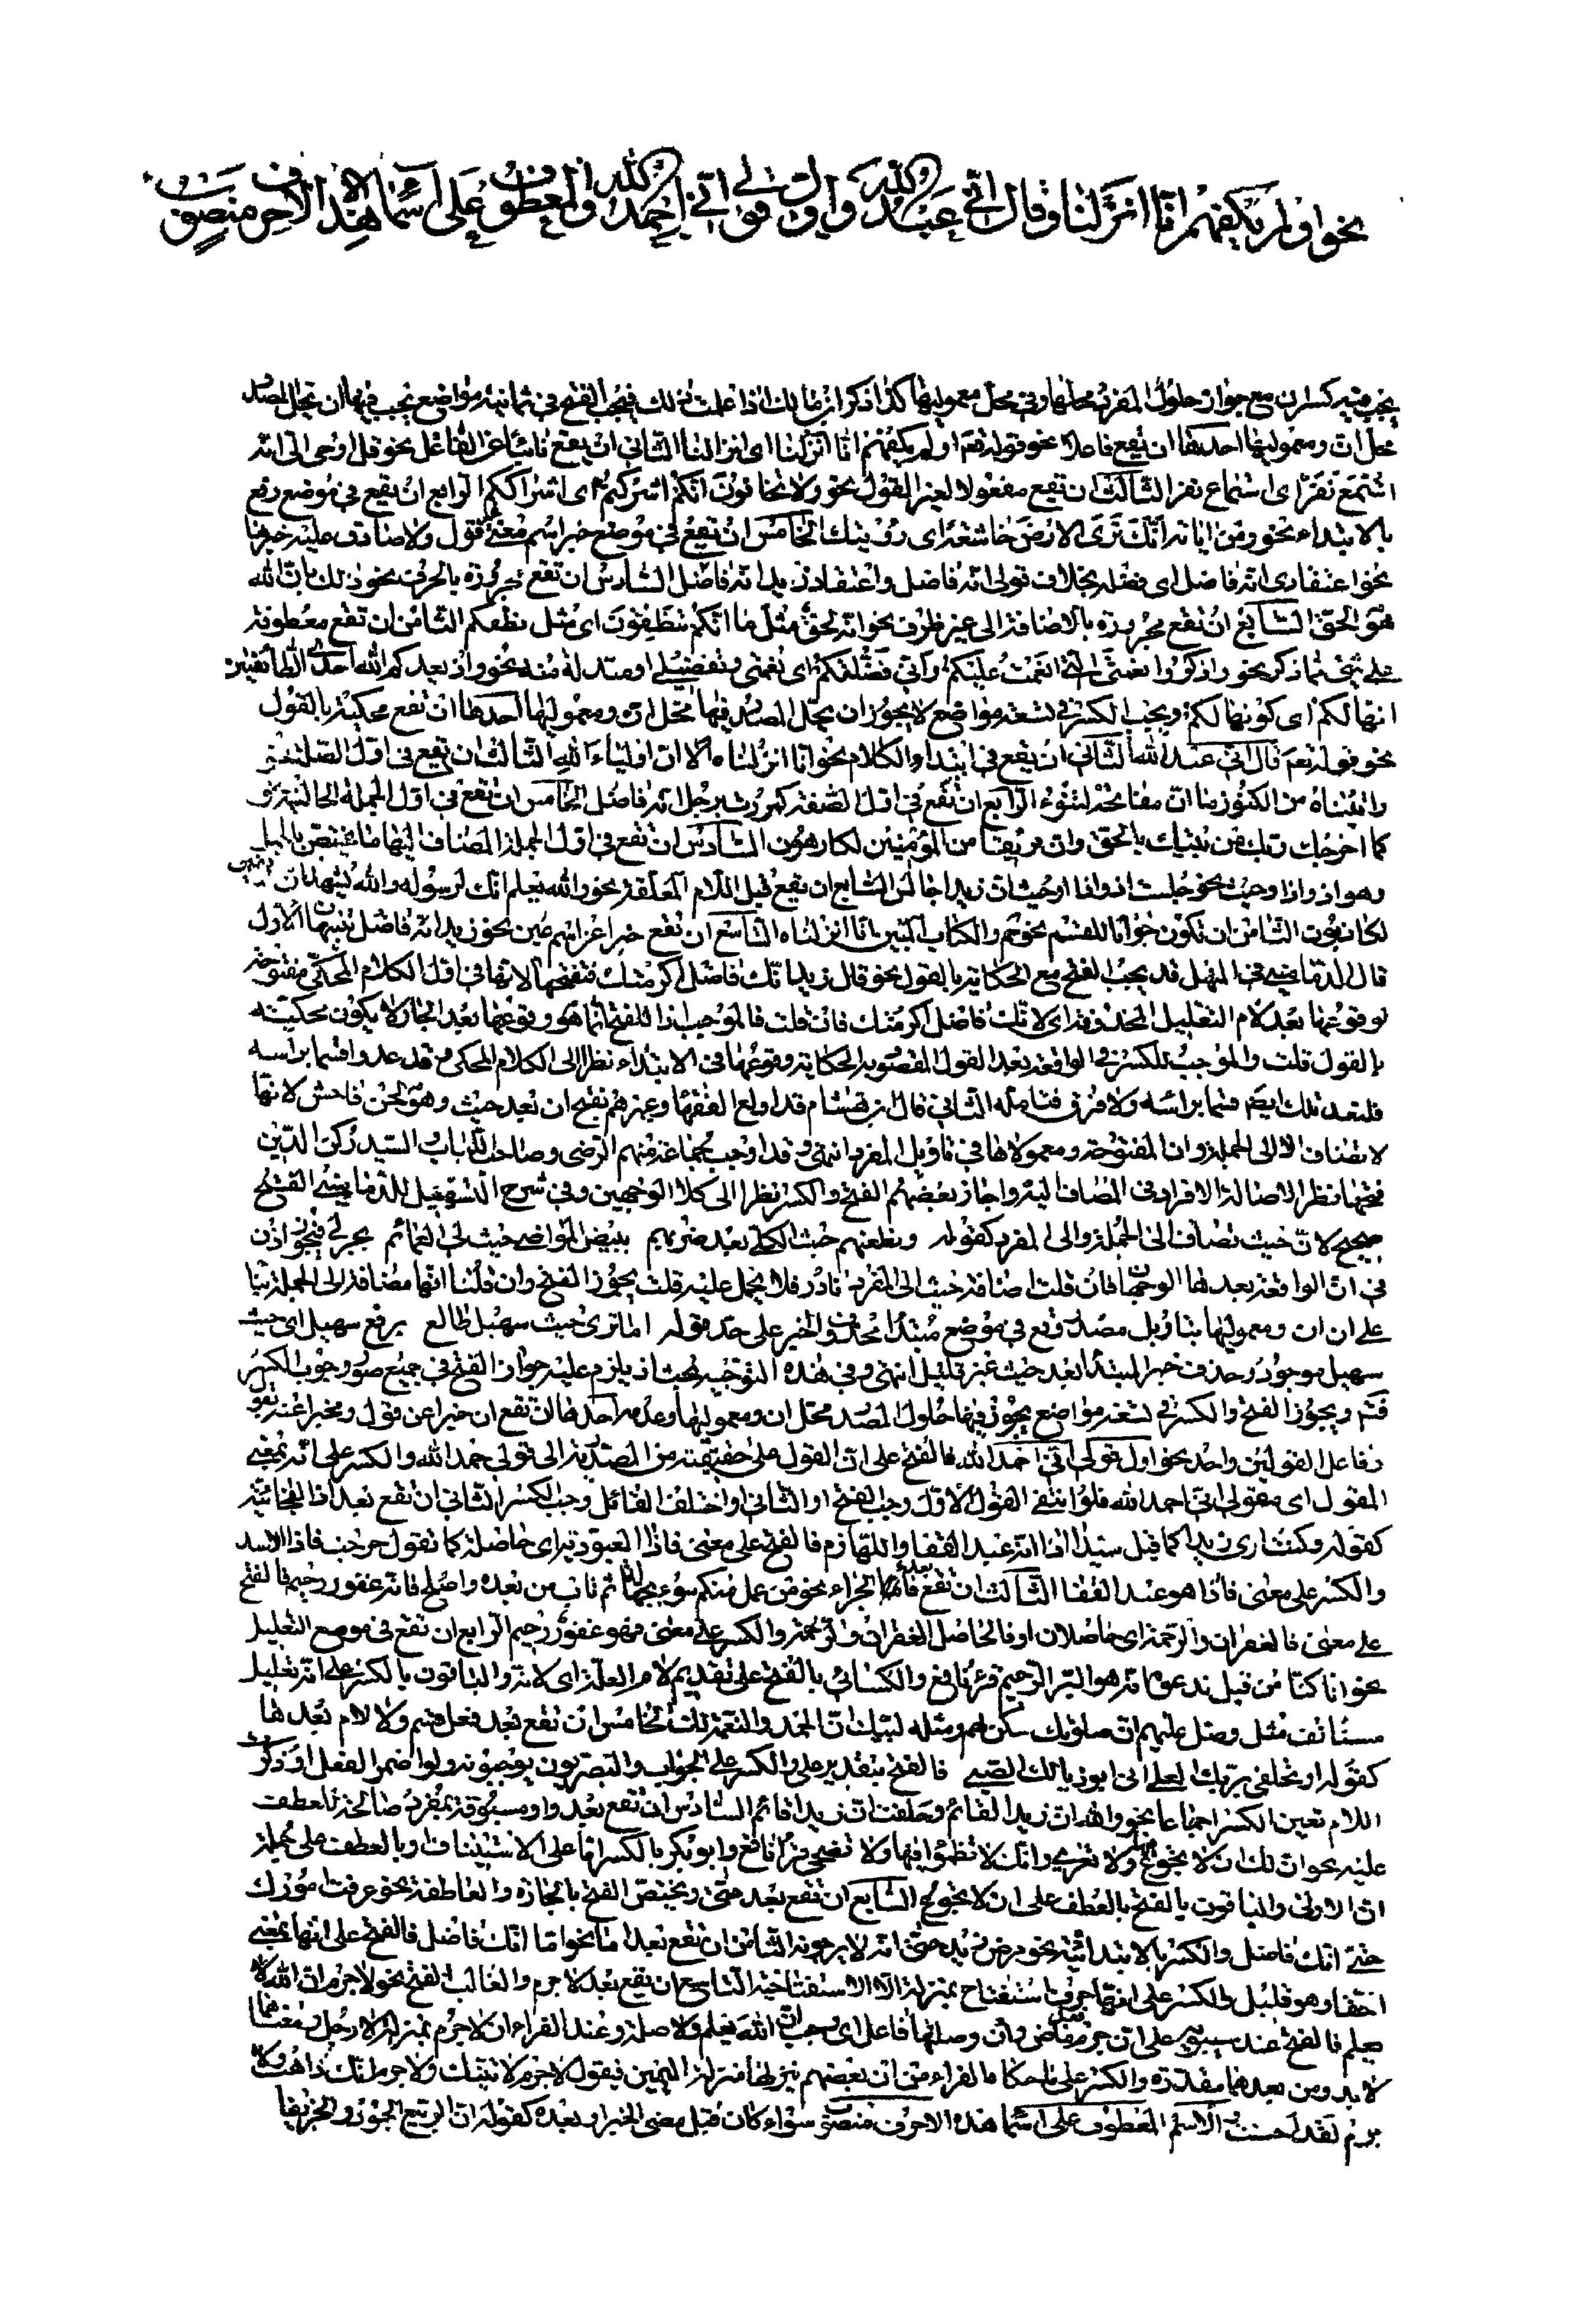 نحو اولم يكفهم انا انزلنا وقال اني عبد الله واول قولي اني احمد الله والمعطوف على اسماء هذه الاحرف منصوب
يجب فيه كسران مع جواز حلول المفرد محلها وفي محل معموليها كذا ذكر ابن مالك اذا علمت ذلك فيجب الفتح في ثمانية مواضع يجب فيها ان يحل المصدر
محل ان ومعموليها احدها ان يقع فاعلا نحو قوله تعالى اولم يكفهم انا انزلنا اى انزالنا الثاني ان يقع نائبا عن الفاعل نحو قل اوحى الى انه
استمع نفر اى استماع نفر الثالث ان تقع مفعولا لغير القول نحو ولا تخافون انكم اشركتم اى اشراككم الرابع ان يقع في موضع رفع
بالابتداء نحو ومن اياته انك ترى الارض خاشعة اى رؤيتك الخامس ان تقع في موضع خبر اسم معنى غير قول ولا صادق عليه خبرها
نحو اعتقادى انه فاضل اى فضله بخلاف قولى انه فاضل واعتقاد زيد انه فاضل السادس ان تقع مجرورة بالحرف نحو ذلك بان الله
هو الحق السابع ان تقع مجرورة بالاضافة الى غير ظرف نحو انه لحق مثل ما انكم تنطقون اى مثل نطقكم الثامن ان تقع معطوفة
على شئ مما ذكر نحو واذكروا نعمتى التى انعمت عليكم وانى فضلتكم اى نعمتى وتفضيلى او مبدلة منه نحو واذ يعدكم الله احدى الطائفتين
انها لكم اى كونها لكم ويجب الكسر في تسعة مواضع لا يجوز ان يحل المصدر فيها محل ان ومعموليها احدها ان تقع محكية بالقول
نحو قوله تعالى قال انى عبد الله الثانى ان يقع في ابتداء الكلام نحو انا انزلناه الا ان اولياء الله الثالث ان تقع في اول الصلة نحو
واتيناه من الكنوز ما ان مفاتحه لتنوء الرابع ان تقع في اول الصفة كمررت برجل انه فاضل الخامس ان تقع في اول الجملة الحالية نحو
كما اخرجك ربك من بيتك بالحق وان فريقا من المؤمنين لكارهون السادس ان تقع في اول الجملة المضاف اليها ما يختص بالجمل
وهو اذ واذا وحيث نحو جلست اذ واذا او حيث ان زيدا جالس السابع ان تقع قبل اللام المعلقة نحو والله يعلم انك لرسوله والله يشهد ان المنافقين
لكاذبون الثامن ان تكون جوابا للقسم نحو حم والكتاب المبين انا انزلناه التاسع ان تقع خبرا عن اسم عين نحو زيد انه فاضل تنبيهان الاول
قال الدمامينى في المنهل قد يجب الفتح مع الحكاية بالقول نحو قال زيد انك فاضل اكرمتك فتفتحها لا انها في اول الكلام المحكى مفتوحة
لوقوعها بعد لام التعليل المحذوفة اى لانك فاضل اكرمتك فان قلت فالموجب اذا للفتح انما هو وقوعها بعد الجار لا بكون محكية
بالقول قلت والموجب للكسر في الواقعة بعد القول المقصود به الحكاية وقوعها في الابتداء نظرا الى الكلام المحكى وقد عدوا قسما براسه
فلتعد تلك ايضا قسما براسه ولا فرق فتامله الثانى قال ابن هشام قد اولع الفقها وغيرهم بفتح ان بعد حيث وهو لحن فاحش لانها
لا تضاف الا الى الجملة وان المفتوحة ومعمولاها في تاويل المفرد انتهى وقد اوجب جماعة منهم الرضى وصاحب اللباب والسيد ركن الدين
فتحها نظرا لاصالة الافراد في المضاف اليه واجاز بعضهم الفتح والكسر نظرا الى كلا الوجهين وفى شرح التسهيل للدمامينى الفتح
صحيح لان حيث تضاف الى الجملة والى المفرد كقوله ونطعنهم حيث الكلى بعد ضربهم ببيض المواضى حيث لى العمائم بجر لى فيجوز اذن
في ان الواقعة بعدها الوجهان فان قلت اضافة حيث الى المفرد نادر فلا يحمل عليه قلت يجوز الفتح وان قلنا انها مضافة الى الجملة بنا
على ان ان ومعموليها بتاويل مصدر وقع في موضع مبتدا محذوف الخبر على حد قوله اما ترى حيث سهيل طالعا برفع سهيل اى حيث
سهيل موجود وحذف خبر المبتدا بعد حيث غير قليل انتهى وفى هذه التوجيه بحث اذ يلزم عليه جواز الفتح في جميع صور وجوب الكسر
فتم ويجوز الفتح والكسر في تسعة مواضع يجوز فيها حلول المصدر محل ان ومعموليها وعدمه احدها ان تقع ان خبرا عن قول ومخبرا عنه بقول
وفاعل القولين واحد نحو اول قولى انى احمد الله فالفتح على ان القول على حقيقته من المصدرية اى قولى حمد الله والكسر على انه بمعنى
المقول اى مقولى انى احمد الله فلو انتفى القول الاول وجب الفتح او الثانى او اختلف القائل وجب الكسر الثانى ان تقع بعد اذا الفجائية
كقوله وكنت ارى زيدا كما قيل سيدا اذا انه عبد القفا واللهازم فالفتح على معنى فاذا العبودية اى حاصلة كما تقول خرجت فاذا الاسد
والكسر على معنى فاذا هو عبد القفا الثالث ان تقع بعد فاء الجزاء نحو من عمل منكم سوء بجهالة ثم تاب من بعده واصلح فانه غفور رحيم فالفتح
على معنى فالغفران والرحمة اى حاصلان او فالحاصل الغفران والرحمة والكسر على معنى فهو غفور رحيم الرابع ان تقع في موضع التعليل
نحو انا كنا من قبل ندعوه انه هو البر الرحيم قرء نافع والكسائى بالفتح على تقديم لام العلة اى لانه والباقون بالكسر على انه تعليل
مستانف مثل وصل عليهم ان صلوتك سكن لهم ومثله لبيك ان الحمد والنعمة لك الخامس ان تقع بعد فعل قسم ولا لام بعدها
كقوله او تحلفى بربك العلى انى ابو ذيالك الصبى فالفتح بتقدير على والكسر على الجواب والبصريون يوجبونه ولو اضمر الفعل او ذكرت
اللام تعين الكسر اجماعا نحو والله ان زيدا لقائم وحلفت ان زيدا قائم السادس ان تقع بعد واو مسبوقة بمفرد صالح للعطف
عليه نحو ان لك ان لا تجوع فيها ولا تعرى وانك لا تظمؤا فيها ولا تضحى قرء نافع وابو بكر بالكسر اما على الاستيناف او بالعطف على جملة
ان الاولى والباقون بالفتح بالعطف على ان لا تجوع السابع ان تقع بعد حتى ويختص الفتح بالجارة والعاطفة نحو عرفت امورك
حتى انك فاضل والكسر بالابتدائية نحو مرض زيد حتى انه لا يرجونه الثامن ان تقع بعد اما نحو اما انك فاضل فالفتح على انها بمعنى
احقا وهو قليل والكسر على انها حرف استفتاح بمنزلة الا الاستفتاحية التاسع ان تقع بعد لا جرم والغالب الفتح نحو لا جرم ان الله
يعلم فالفتح عند سيبويه على ان جرم فعل ماض وان وصلتها فاعل اى وجب ان الله يعلم ولا صلة وعند الفراء ان لا جرم بمنزلة لا رجل ومعناهما
لا بد ومن بعدهما مقدرة والكسر على ما حكاه الفراء من ان بعضهم ينزلها منزلة اليمين فيقول لا جرم لاتينك ولا جرم انك ذاهب ولا
جرم لقد احسنت الاسم المعطوف على اسماء هذه الاحرف منصوب سواء كان قبل مضى الخبر او بعده كقوله ان الربيع الجود والخريفا